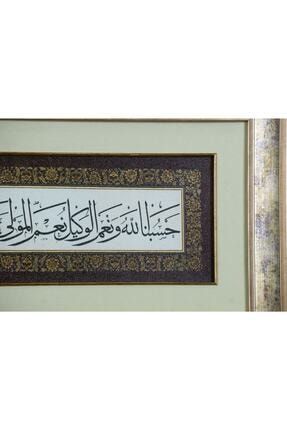 حَسْبُنَا اللّٰهُ وَنِعْمَ الْوَكِيلُ نِعْمَ الْمَوْلٰى